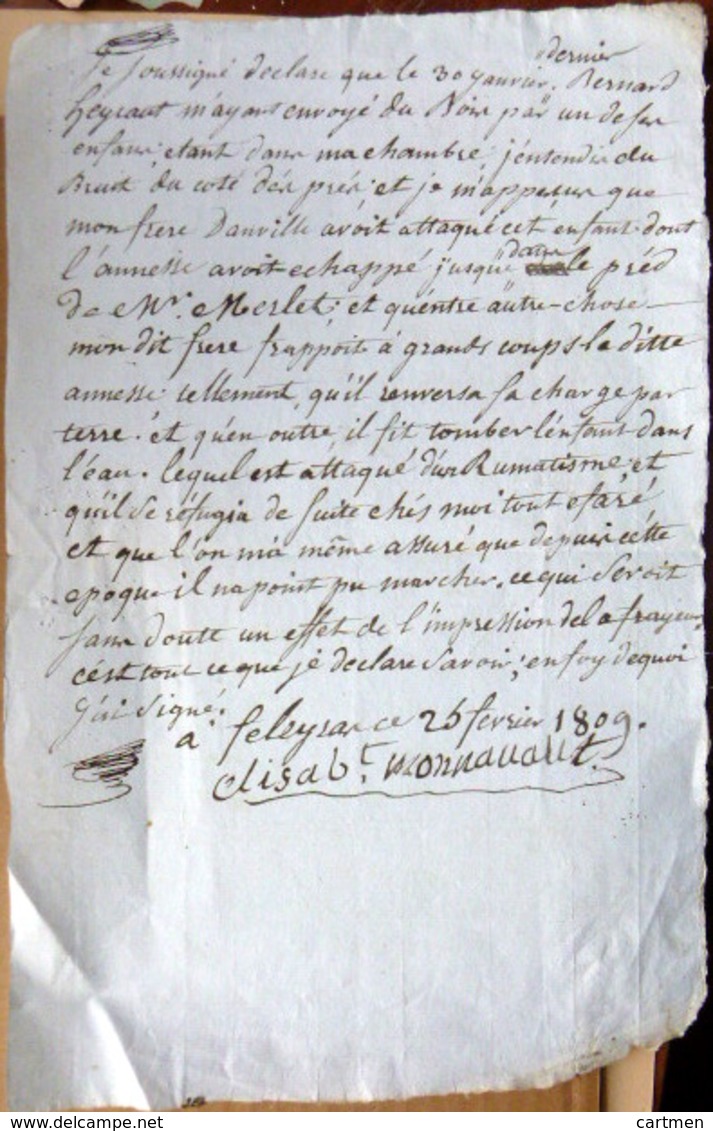 dernier
Je soussigné declare que le 30 janvier. Bernard
heyraut m'ayant envoyé du Bois par un de ses
enfans, etant dans ma chambre, j'entendis du
Bruit du coté dés prés; et je m'apperçus que
mon frere Danville avoit attaqué cet enfant dont
l'annesse avoit echappé jusque dans le préd
de Mr. Merlet; et quéntre autre chose
mon dit frere frappoit á grands coups la ditte
annesse tellement, qu'il renversa sa charge par
terre. ét qu'en outre, il fit tomber lénfant dans
l'eau. lequel est attaqué d'un Rumatisme et
qu'il se réfugia de suite chés moi tout efaré
et que l'on m'a même assuré que depuis cétte
epoque il na point pu marcher. ce qui seroit
sans doutte un effet de l'impression de la frayeur,
cést tout ce que jé declare savoir; en foy de quoi
j'ai signé.
a ce 25 fevrier 1809.
elisabt.
cartmen